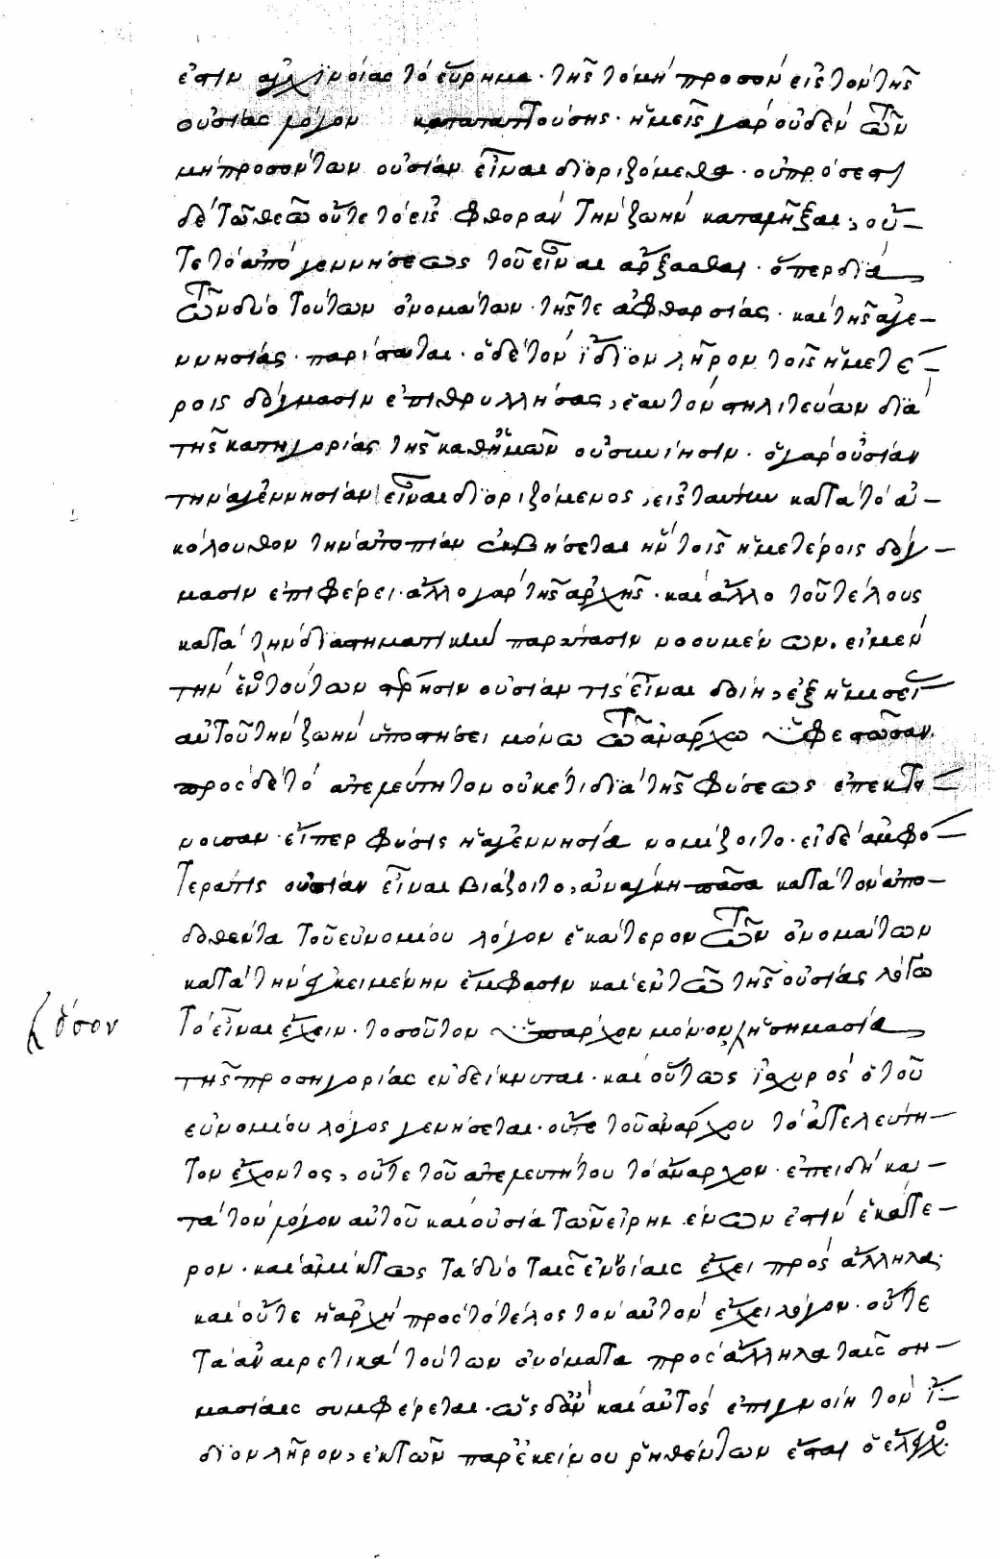 ἐστιν ἀγχϊνοίας τὸ εὕρημα· τῆς τὸ μὴ προσὸν εἰς τὸν τῆς
οὐσίας λόγον καταπατούσης· ἡμεῖς γὰρ οὐδὲν τῶν
μὴ προσόντων οὐσίαν εἶναι διοριζόμεθα· οὐ πρόσεστι
δὲ τῶ θεῶ οὔτε τὸ εἰς φθορὰν τὴν ζωὴν καταλῆξαι, οὔ-
τε τὸ ἀπὸ γεννήσεως τοῦ εἶναι ἄρξασθαι· ὅπερ διὰ
τῶν δύο τούτων ὀνομάτων· τῆς τε ἀφθαρσίας· καὶ τῆς ἀγε-
ννησίας· παρίσταται· ὁ δὲ τὸν ἴδϊον λῆρον τοῖς ἡμετέ-
ροις δόγμασιν ἐπιθρυλλήσας, ἑαυτὸν στηλιτεύων διὰ
τῆς κατηγορίας τῆς καθ ἡμῶν οὐ συνίησιν· ὁ γὰρ οὐσίαν
τὴν ἀγεννησίαν εἶναι διοριζόμενος, εἰς ταύτην κατὰ τὸ ἀ-
κόλουθον τὴν ἀτοπίαν ἐκβήσεται ἣν τοῖς ἡμετέροις δόγ-
μασιν ἐπιφέρει· ἄλλο γὰρ τῆς ἀρχῆς· καὶ ἄλλο τοῦ τέλους
κατὰ τὴν διαστηματικὴν παράτασιν νοουμένων. εἰ μὲν
τὴν ἑνὸς τούτων στέρησιν οὐσίαν τις εἶναι δοίη, ἐξ ἡμισεί
αὐτοῦ τὴν ζωὴν ὑποστήσει μόνω τῶ ἀνάρχω ὑφεστῶσαν.
πρὸς δὲ τὸ ἀτελεύτητον οὐκέτι διὰ τῆς φύσεως ἐπεκτεί-
νουσαν· εἴπερ φύσις ἡ ἀγεννησία νομίζοιτο· εἰ δὲ ἀμφό-
τερά τις οὐσίαν εἶναι βιάζοιτο, ἀνάγκη πᾶσα κατὰ τὸν ἀπο-
δοθέντα τοῦ εὐνομίου λόγον ἑκάτερον τῶν ὀνομάτων
κατὰ τὴν ἐγκειμένην ἔμφασιν καὶ ἐν τῶ τῆς οὐσίας λόγω
τὸ εἶναι ἔχειν· τοσοῦτον ὑπάρχον μόνον, ἡ σημασία
ὅσον
τῆς προσηγορίας ἐνδείκνυται· καὶ οὕτως ἰσχυρὸς ὁ τοῦ
εὐνομίου λόγος γενήσεται· οὔτε τοῦ ἀνάρχου τὸ ἀτελεύτη-
τον ἔχοντος, οὔτε τοῦ ἀτελευτήτου τὸ ἄναρχον· ἐπειδὴ κα-
τὰ τὸν λόγον αὐτοῦ καὶ οὐσία τῶν εἰρημένων ἐστὶν ἑκάτε-
ρον· καὶ ἀμίκτως τὰ δύο ταῖς ἐννοίαις ἔχει πρὸς ἄλληλα·
καὶ οὔτε ἡ ἀρχὴ πρὸς τὸ τέλος τὸν αὐτὸν ἔχει λόγον· οὔτε
τὰ ἀναιρετικὰ τούτων ὀνόματα πρὸς ἄλληλα ταῖς ση-
μασίαις συμφέρεται· ὡς δ ἂν καὶ αὐτὸς ἐπιγνοίη τὸν ἴ-
διον λῆρον, ἐκ τῶν παρ ἐκείνου ῥηθέντων ἔσται ὁ ἔλεγχος·